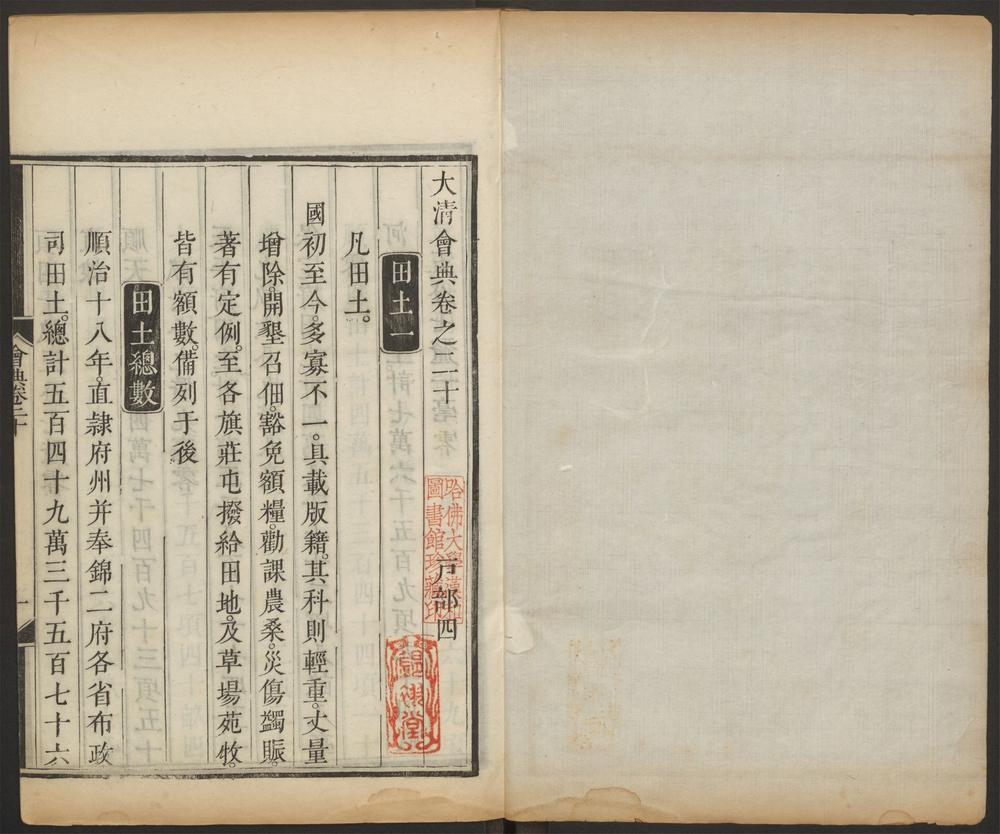 大清會典卷之二十
戶部四
田土一
凡田土。
國初至今。多寡不一。具載版籍。其科則輕重。丈量
增除。開墾召佃。豁免額糧。勸課農桑。災傷蠲賑。
著有定例。至各旗莊屯撥給田地。及草場苑牧。
皆有額數。備列于後
田土總數
順治十八年。直隷府州并奉錦二府各省布政
司田土。總計五百四十九萬三千五百七十六
會典卷二十
一
哈佛大學漢和
圖書館珍藏印